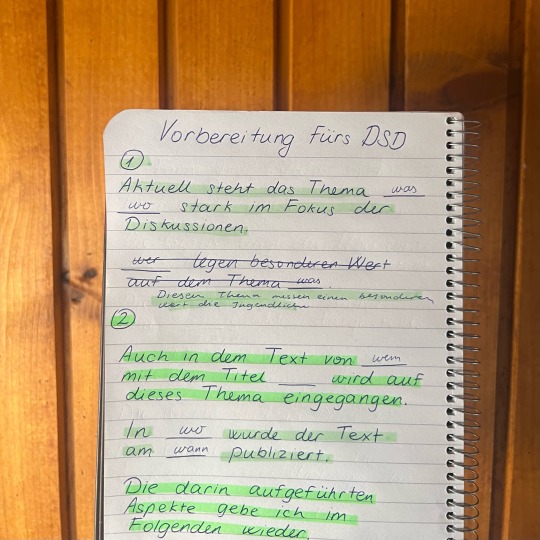 Vorbereitung fürs DSD
1
Aktuell steht das Thema was
wo stark im Fokus der
Diskussionen.
wer legen besonderen Wert
auf dem Thema was.
Diesem Thema messen einen besonderen
Wert die Jugendliche
2
Auch in dem Text von wem
mit dem Titel ___ wird auf
dieses Thema eingegangen.
In wo wurde der Text
am wann publiziert.
Die darin aufgeführten
Aspekte gebe ich im
Folgenden wieder.